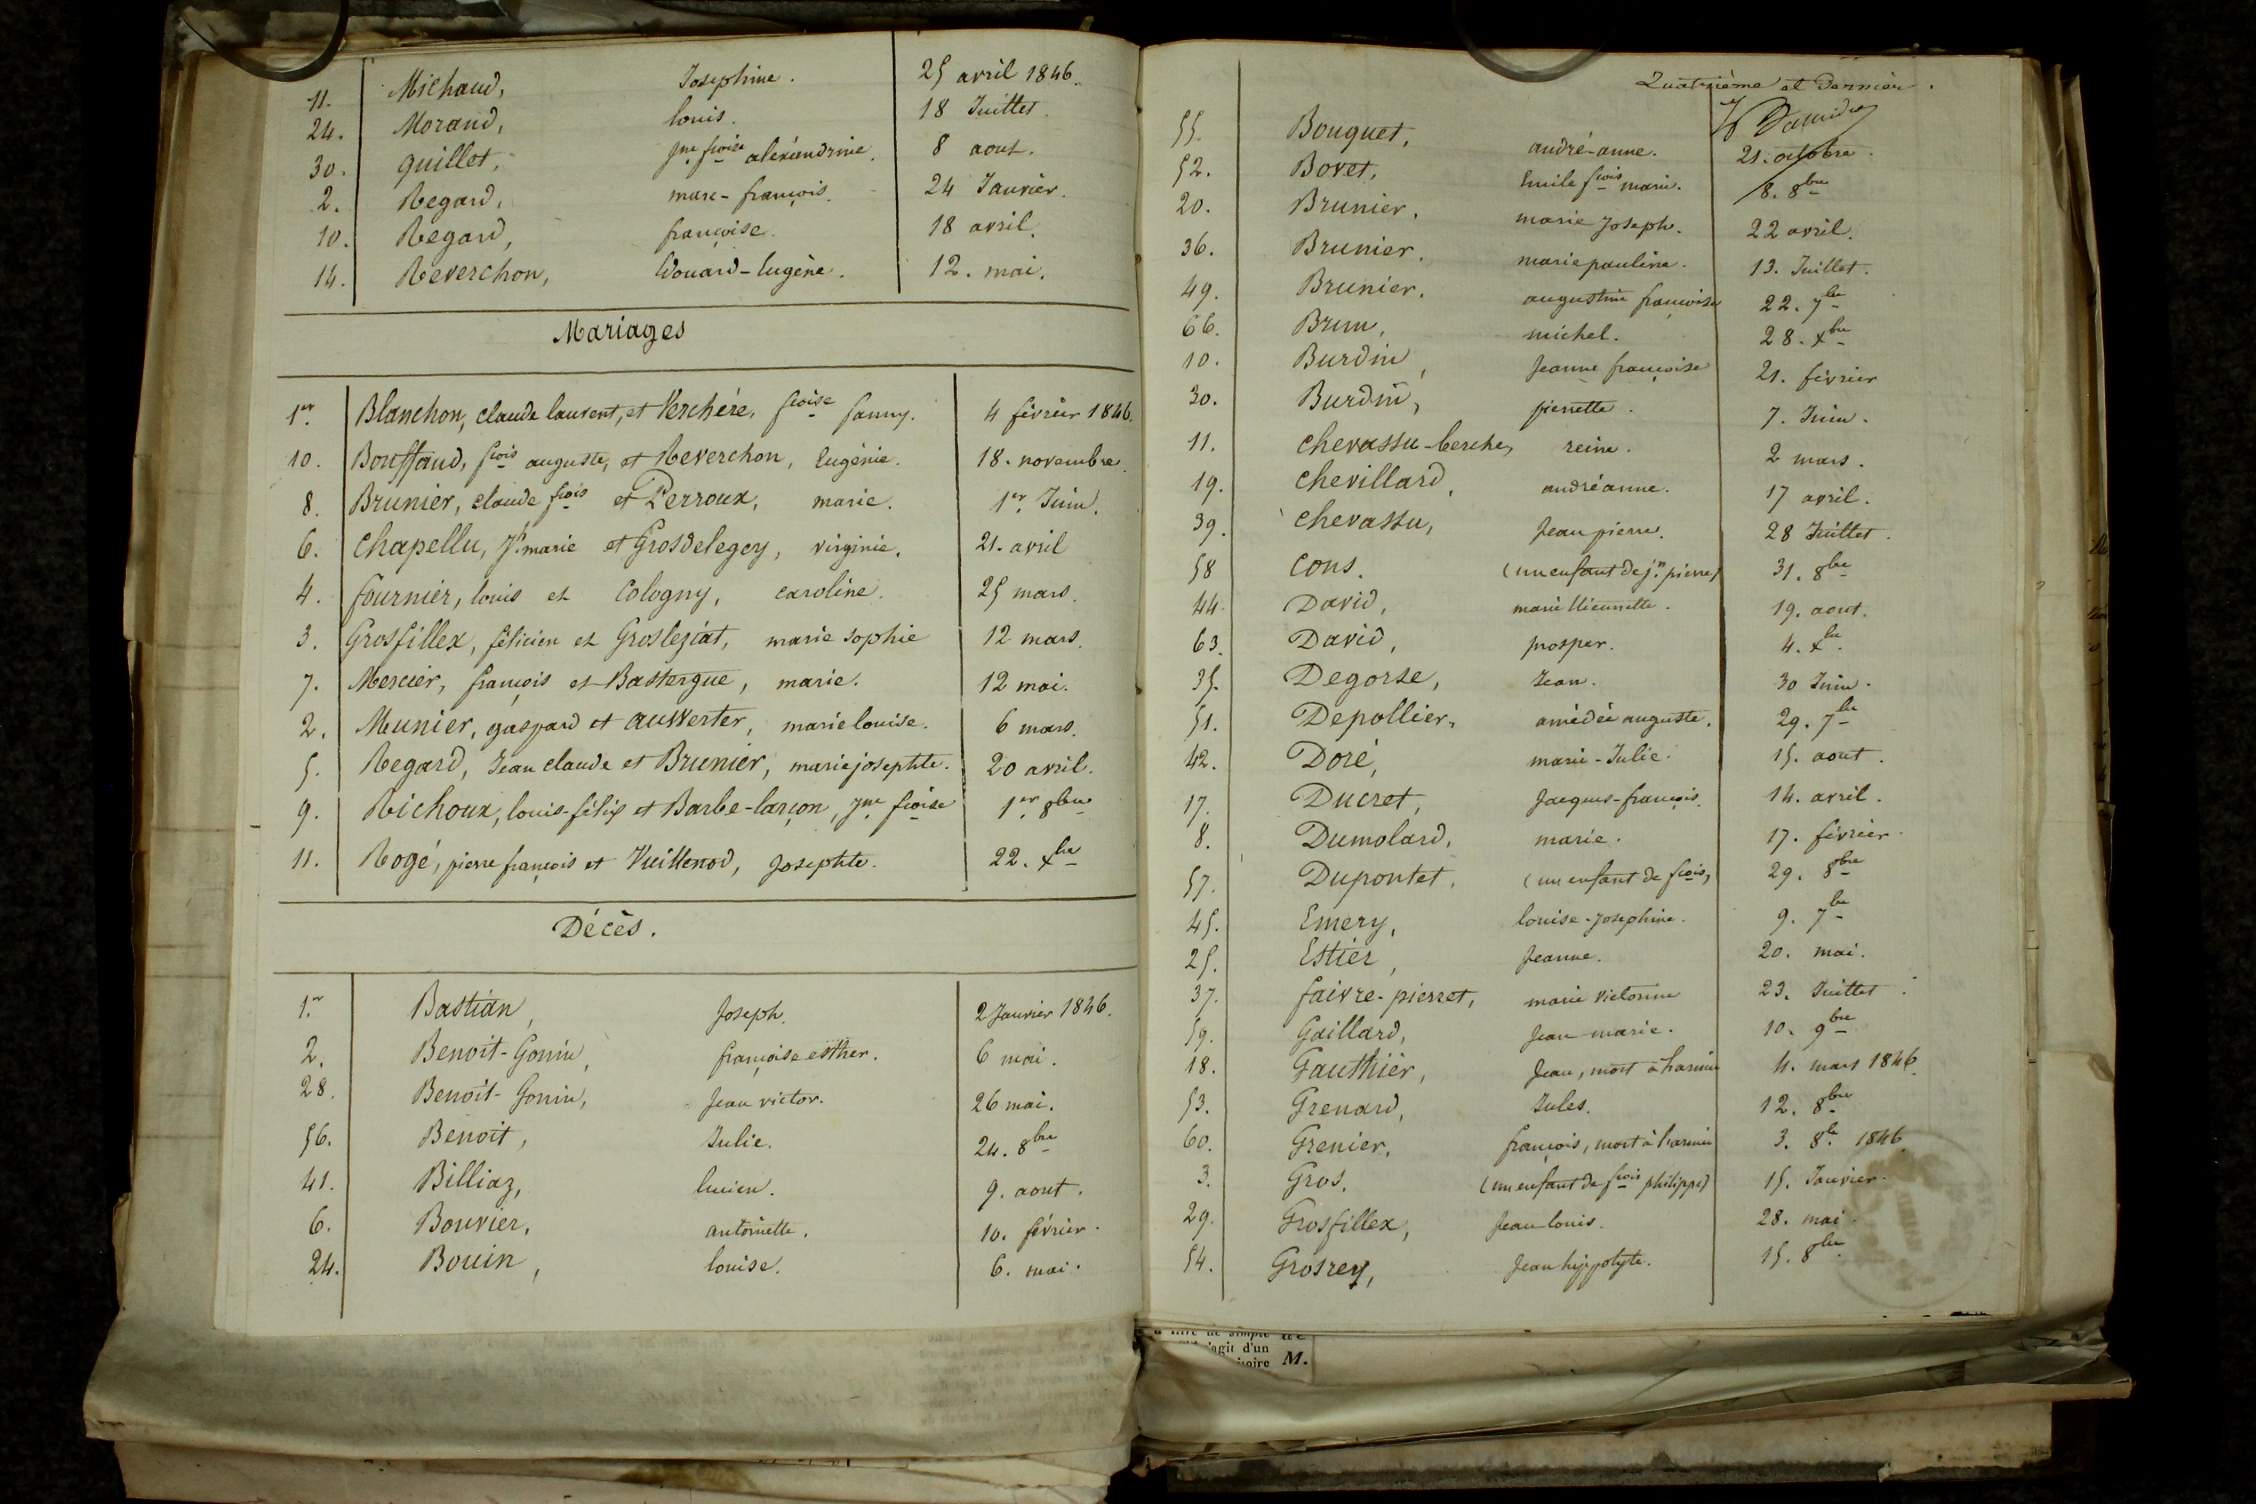 11. Michaud, Josephine. 25 avril 1846.
24. Morand, louis. 18 Juillet.
30. quillet, Jne fcoise alexandrine. 8 aout.
2. Regard, marc-françois. 24 Janvier.
10. Regard, françoise. 18 avril.
14. Reverchon, Edouard-Eugène. 12. mai.
Mariages
1er. Blanchon, claude laurent, et Verchère, fcoise fanny. 4 février 1846.
10. Bouffaud, fcois auguste, et Reverchon, Eugénie. 18. novembre.
8. Brunier, claude fcois et Perroux, marie. 1er. Juin.
6. Chapellu, Jh marie et Grosdelegey, virginie. 21. avril
4. fournier, louis et Cologny, caroline. 25 mars.
3. Grosfillex, félicien et Groslegiat, marie sophie 12 mars.
7. Mercier, françois et Bastergue, marie. 12 mai.
2. Munier, gaspard et auwerter, marie louise. 6 mars.
5. Regard, Jean claude et Brunier, marie josephte. 20 avril.
9. Richoux, louis-félix et Barbe-larçon, Jne fcoise 1er. 8bre
11. Rogé, pierre françois et Vuillerod, Josephte. 22. xbre
Décès.
1er. Bastian, Joseph. 2 Janvier 1846.
2. Benoit-Gonin, françoise esther. 6 mai.
28. Benoit-Gonin, Jean victor. 26 mai.
56. Benoit, Julie. 24. 8bre
41. Billiaz, lucien. 9. aout.
6. Bouvier, antoinette. 10. février.
24. Bouin, louise. 6. mai.
Quatrième et dernier.
55. Bouquet, andré-anne. 21. octobre.
52. Bovet, Emile fcois marie. 8. 8bre
20. Brunier, marie Joseph. 22 avril.
36. Brunier, marie pauline. 13. Juillet.
49. Brunier, augustine françoise 22. 7bre
66. Brun, michel. 28. xbre
10. Burdin, Jeanne françoise 21. février
30. Burdin, pierrette. 7. Juin.
11. Chevassu-berche, reine. 2 mars.
19. Chevillard, andréanne. 17 avril.
39. Chevassu, Jean pierre. 28 Juillet.
58 Cons. (un enfant de jn pierre) 31. 8bre
44. David, marie Etiennette. 19. aout.
63. David, prosper. 4. xbre.
35. Degorse, Jean. 30 Juin.
51. Depollier, amédée auguste. 29. 7bre
42. Doré, marie-Julie. 15. aout.
17. Ducret, Jacques-françois. 14. avril.
8. Dumolard, marie. 17. février.
57. Dupontet, (un enfant de fcois) 29. 8bre
45. Emery, louise-Josephine. 9. 7bre
25. Estier, Jeanne. 20. mai.
37. faivre-pierret, marie victorine 23. Juillet.
59. Gaillard, Jean marie. 10. 9bre
18. Gauthier, Jean, mort à 4. mars 1846.
53. Grenard, Jules. 12. 8bre
60. Grenier, françois, mort à 3. 8bre 1846
3. Gros. (un enfant de fcois philippe) 15. Janvier.
29. Grosfillex, Jean louis. 28. mai.
54. Grosrey, Jean hippolyte. 15. 8bre
simple
agit d'un
M.